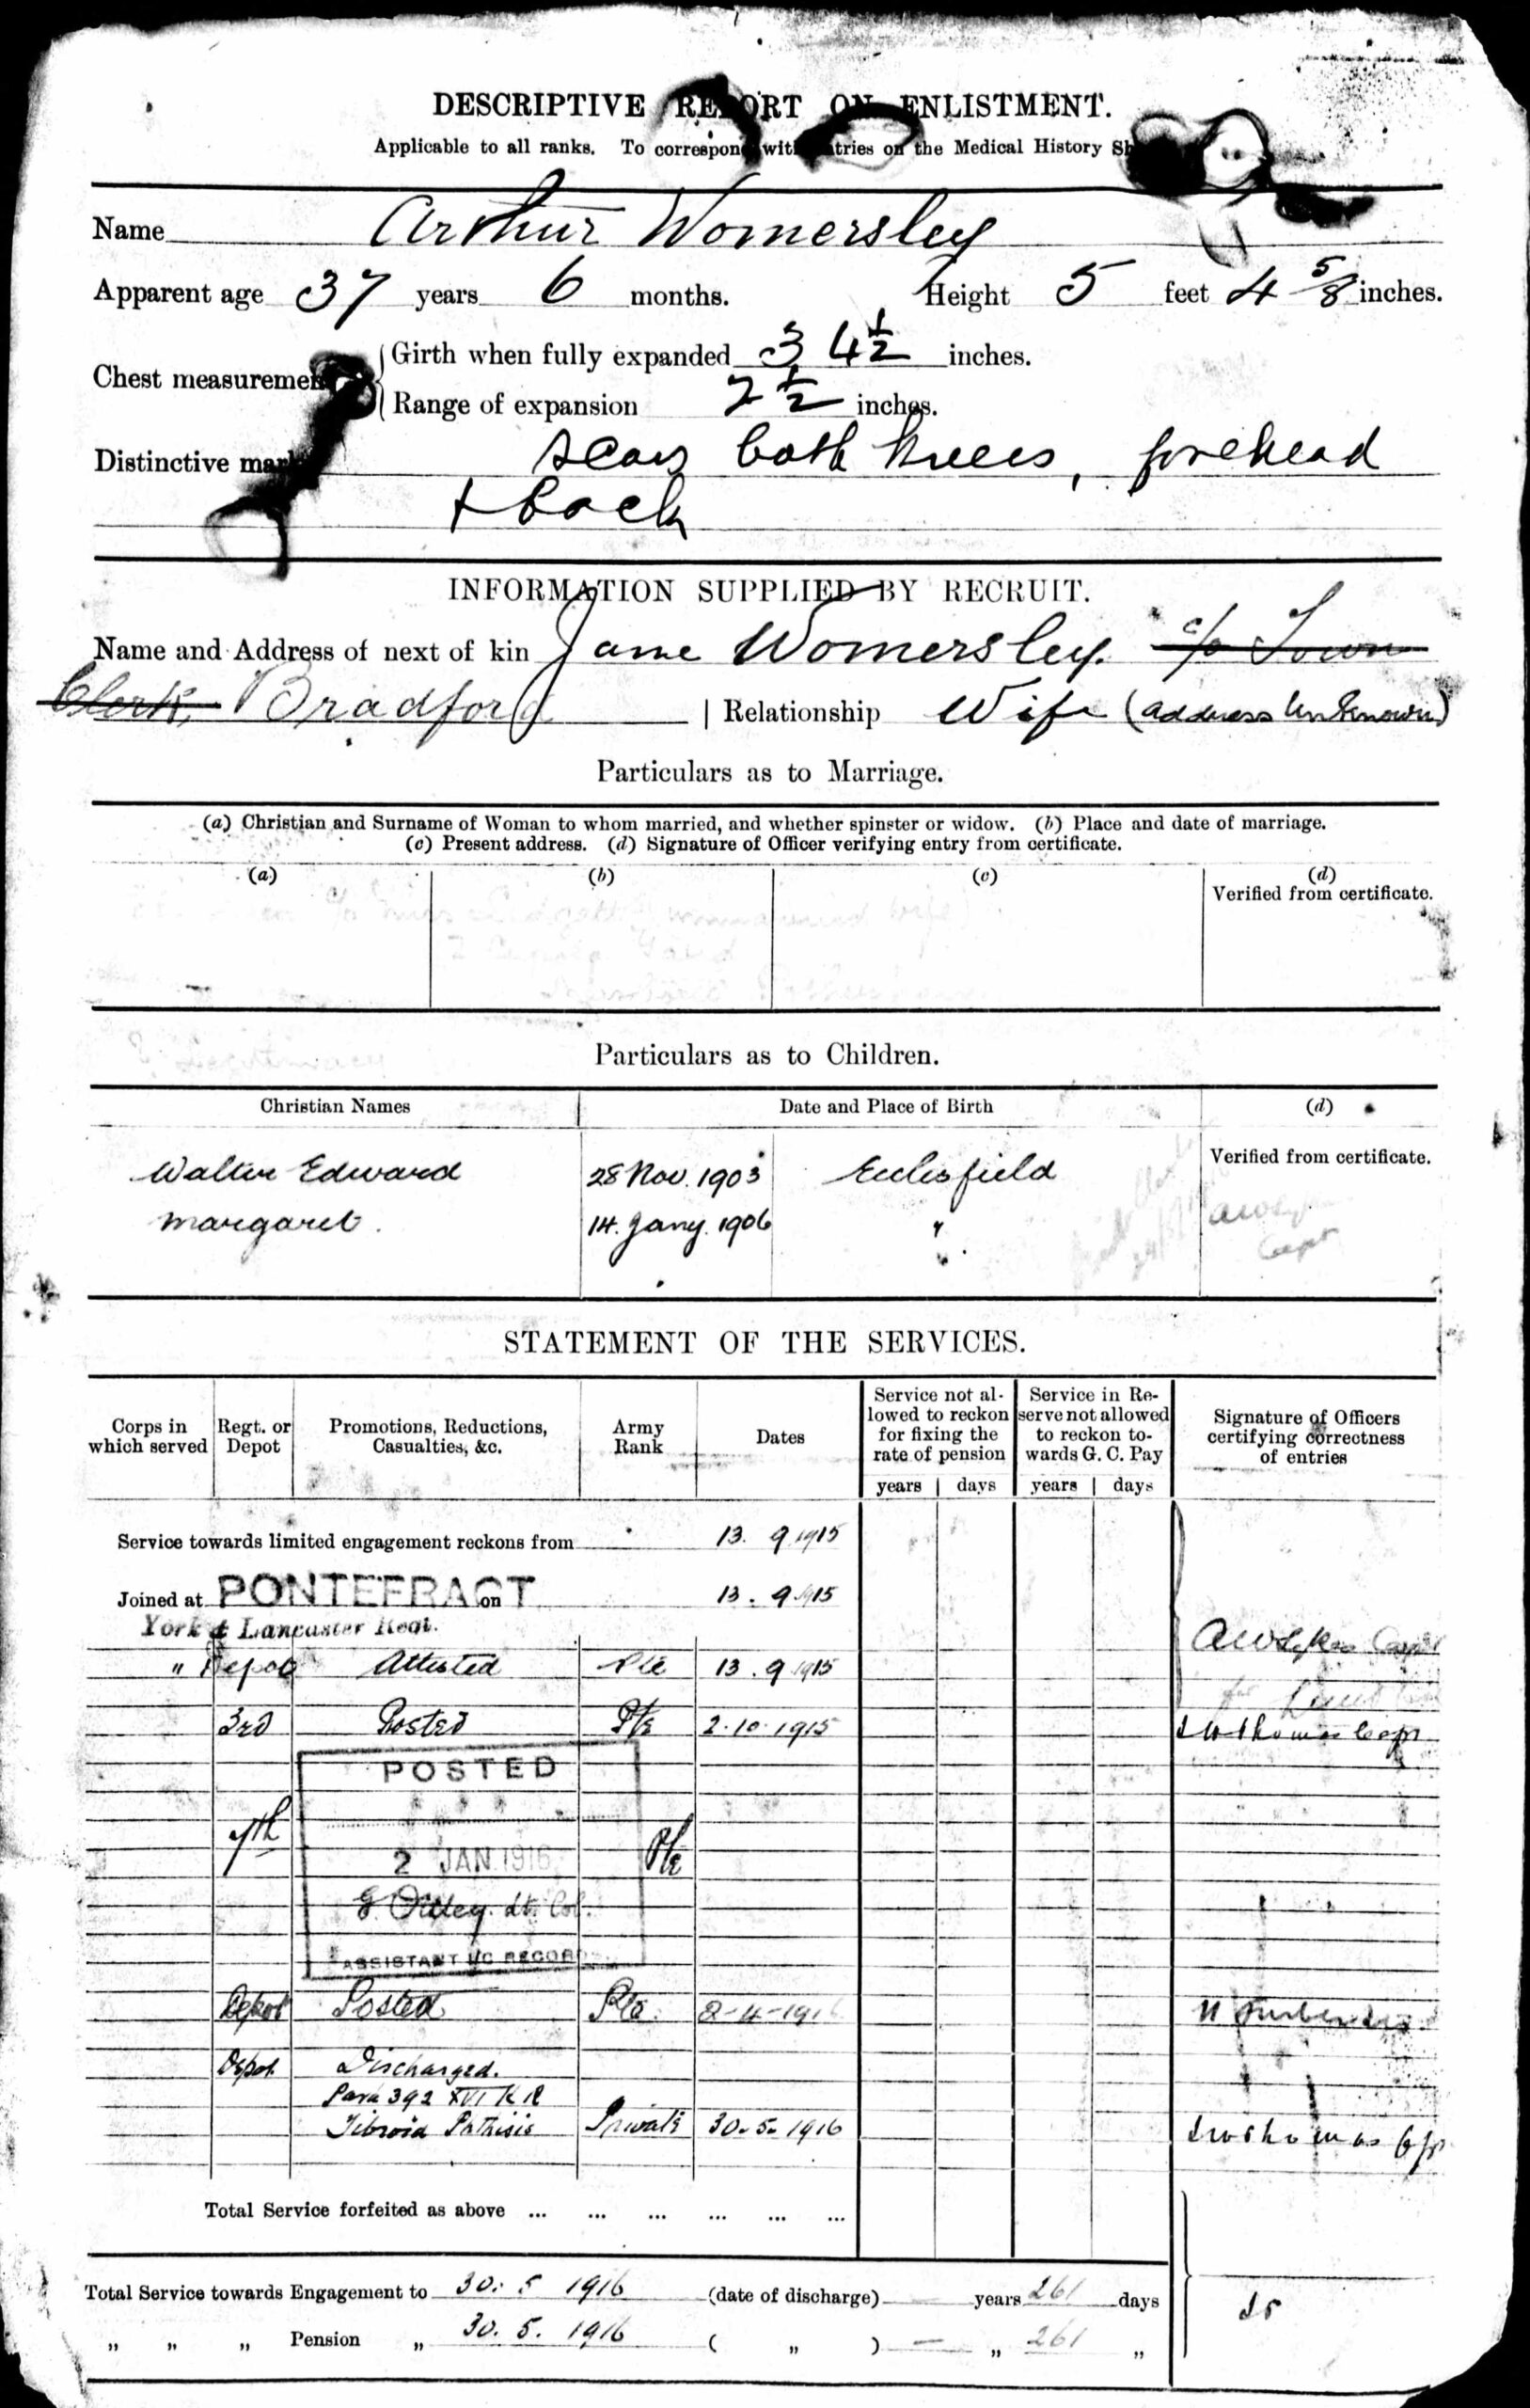 DESCRIPTIVE REPORT ON ENLISTMENT.
Applicable to all ranks. To correspond with entries on the Medical History
Name Arthur Womersley
Apparent age 37 years 6 months. Height 5 feet 4 5/8 inches.
Chest measurement
Girth when fully expanded 34 1/2 inches.
Range of expansion 2 1/2 inches.
Distinctive marks Scars both knees, forehead
+ back
INFORMATION SUPPLIED BY RECRUIT.
Name and Address of next of kin Jane Womersley. c/o Town
Clerk, Bradford | Relationship Wife (address unknown)
Particulars as to Marriage.
(a) Christian and Surname of Woman to whom married, and whether spinster or widow. (b) Place and date of marriage.
(c) Present address. (d) Signature of Officer verifying entry from certificate.
(a) (b) (c) (d)
Verified from certificate.
c/o unmarried wife)
Particulars as to Children.
Christian Names Date and Place of Birth (d)
Verified from certificate.
Walter Edward 28 Nov. 1903 Ecclesfield
Margaret. 14. Jany. 1906 "
Capt
STATEMENT OF THE SERVICES.
Corps in which served Regt. or Depot Promotions, Reductions, Casualties, &c. Army Rank Dates Service not allowed to reckon for fixing the rate of pension Service in Reserve not allowed to reckon towards G. C. Pay Signature of Officers certifying correctness of entries
years days years days
Service towards limited engagement reckons from 13. 9 1915
Joined at PONTEFRACT on 13. 9 1915
York & Lancaster Regt.
" Depot Attested Pte 13. 9 1915 AW Sykes Capt
for
3rd Posted Pte 2.10.1915 Thomas Capt
POSTED
7th Pte
2 JAN 1916
Lt. Col.
ASSISTANT I/C RECORDS
Depot Posted Pte. 2-4-1916
Depot Discharged.
Para 392 XVI K R
Fibroid Phthisis Private 30.5.1916 Thomas
Total Service forfeited as above ... ... ... ... ... ...
Total Service towards Engagement to 30. 5 1916 (date of discharge) — years 261 days
" " " Pension " 30. 5. 1916 ( " ) — " 261 "